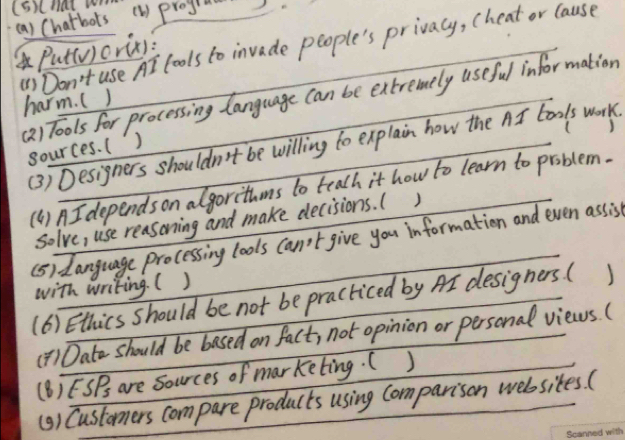 (a) Chatbots (b)
* Put(√) Or(x):
(1) Don't use AI tools to invade people's privacy, Cheat or Cause
harm.( )
(2) Tools for processing Language Can be extremely useful information
sources.( )
(3) Designers shouldn't be willing to explain how the AI tools work.
( )
(4) AI depends on algorithms to teach it how to learn to problem-
Solve, use reasoning and make decisions.( )
(5) Language Processing tools Can't give you information and even assist
with writing.( )
(6) Ethics Should be not be practiced by AI designers.( )
(7) Data Should be based on fact, not opinion or personal views.(
(8) ESPs are Sources of marketing.( )
(9) Customers Compare Products using Comparison websites.(
Scanned with